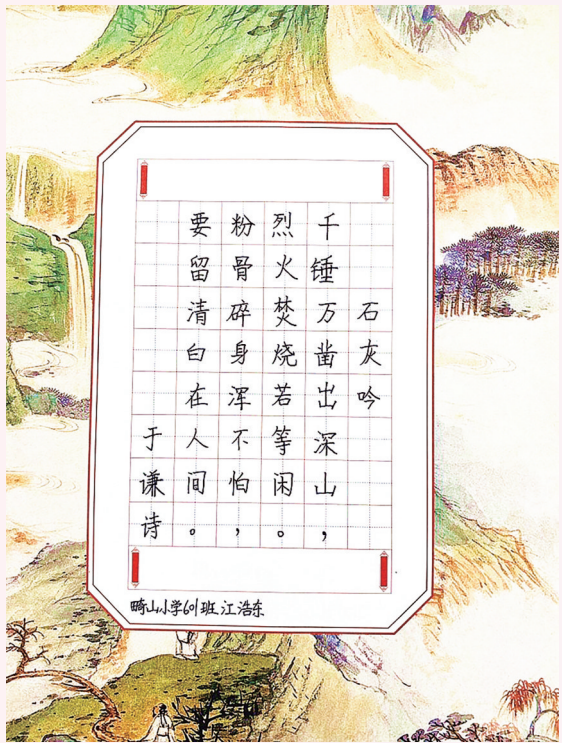 石灰吟
千锤万凿出深山，
烈火焚烧若等闲。
粉骨碎身浑不怕，
要留清白在人间。
于谦诗
畸山小学601班江浩东